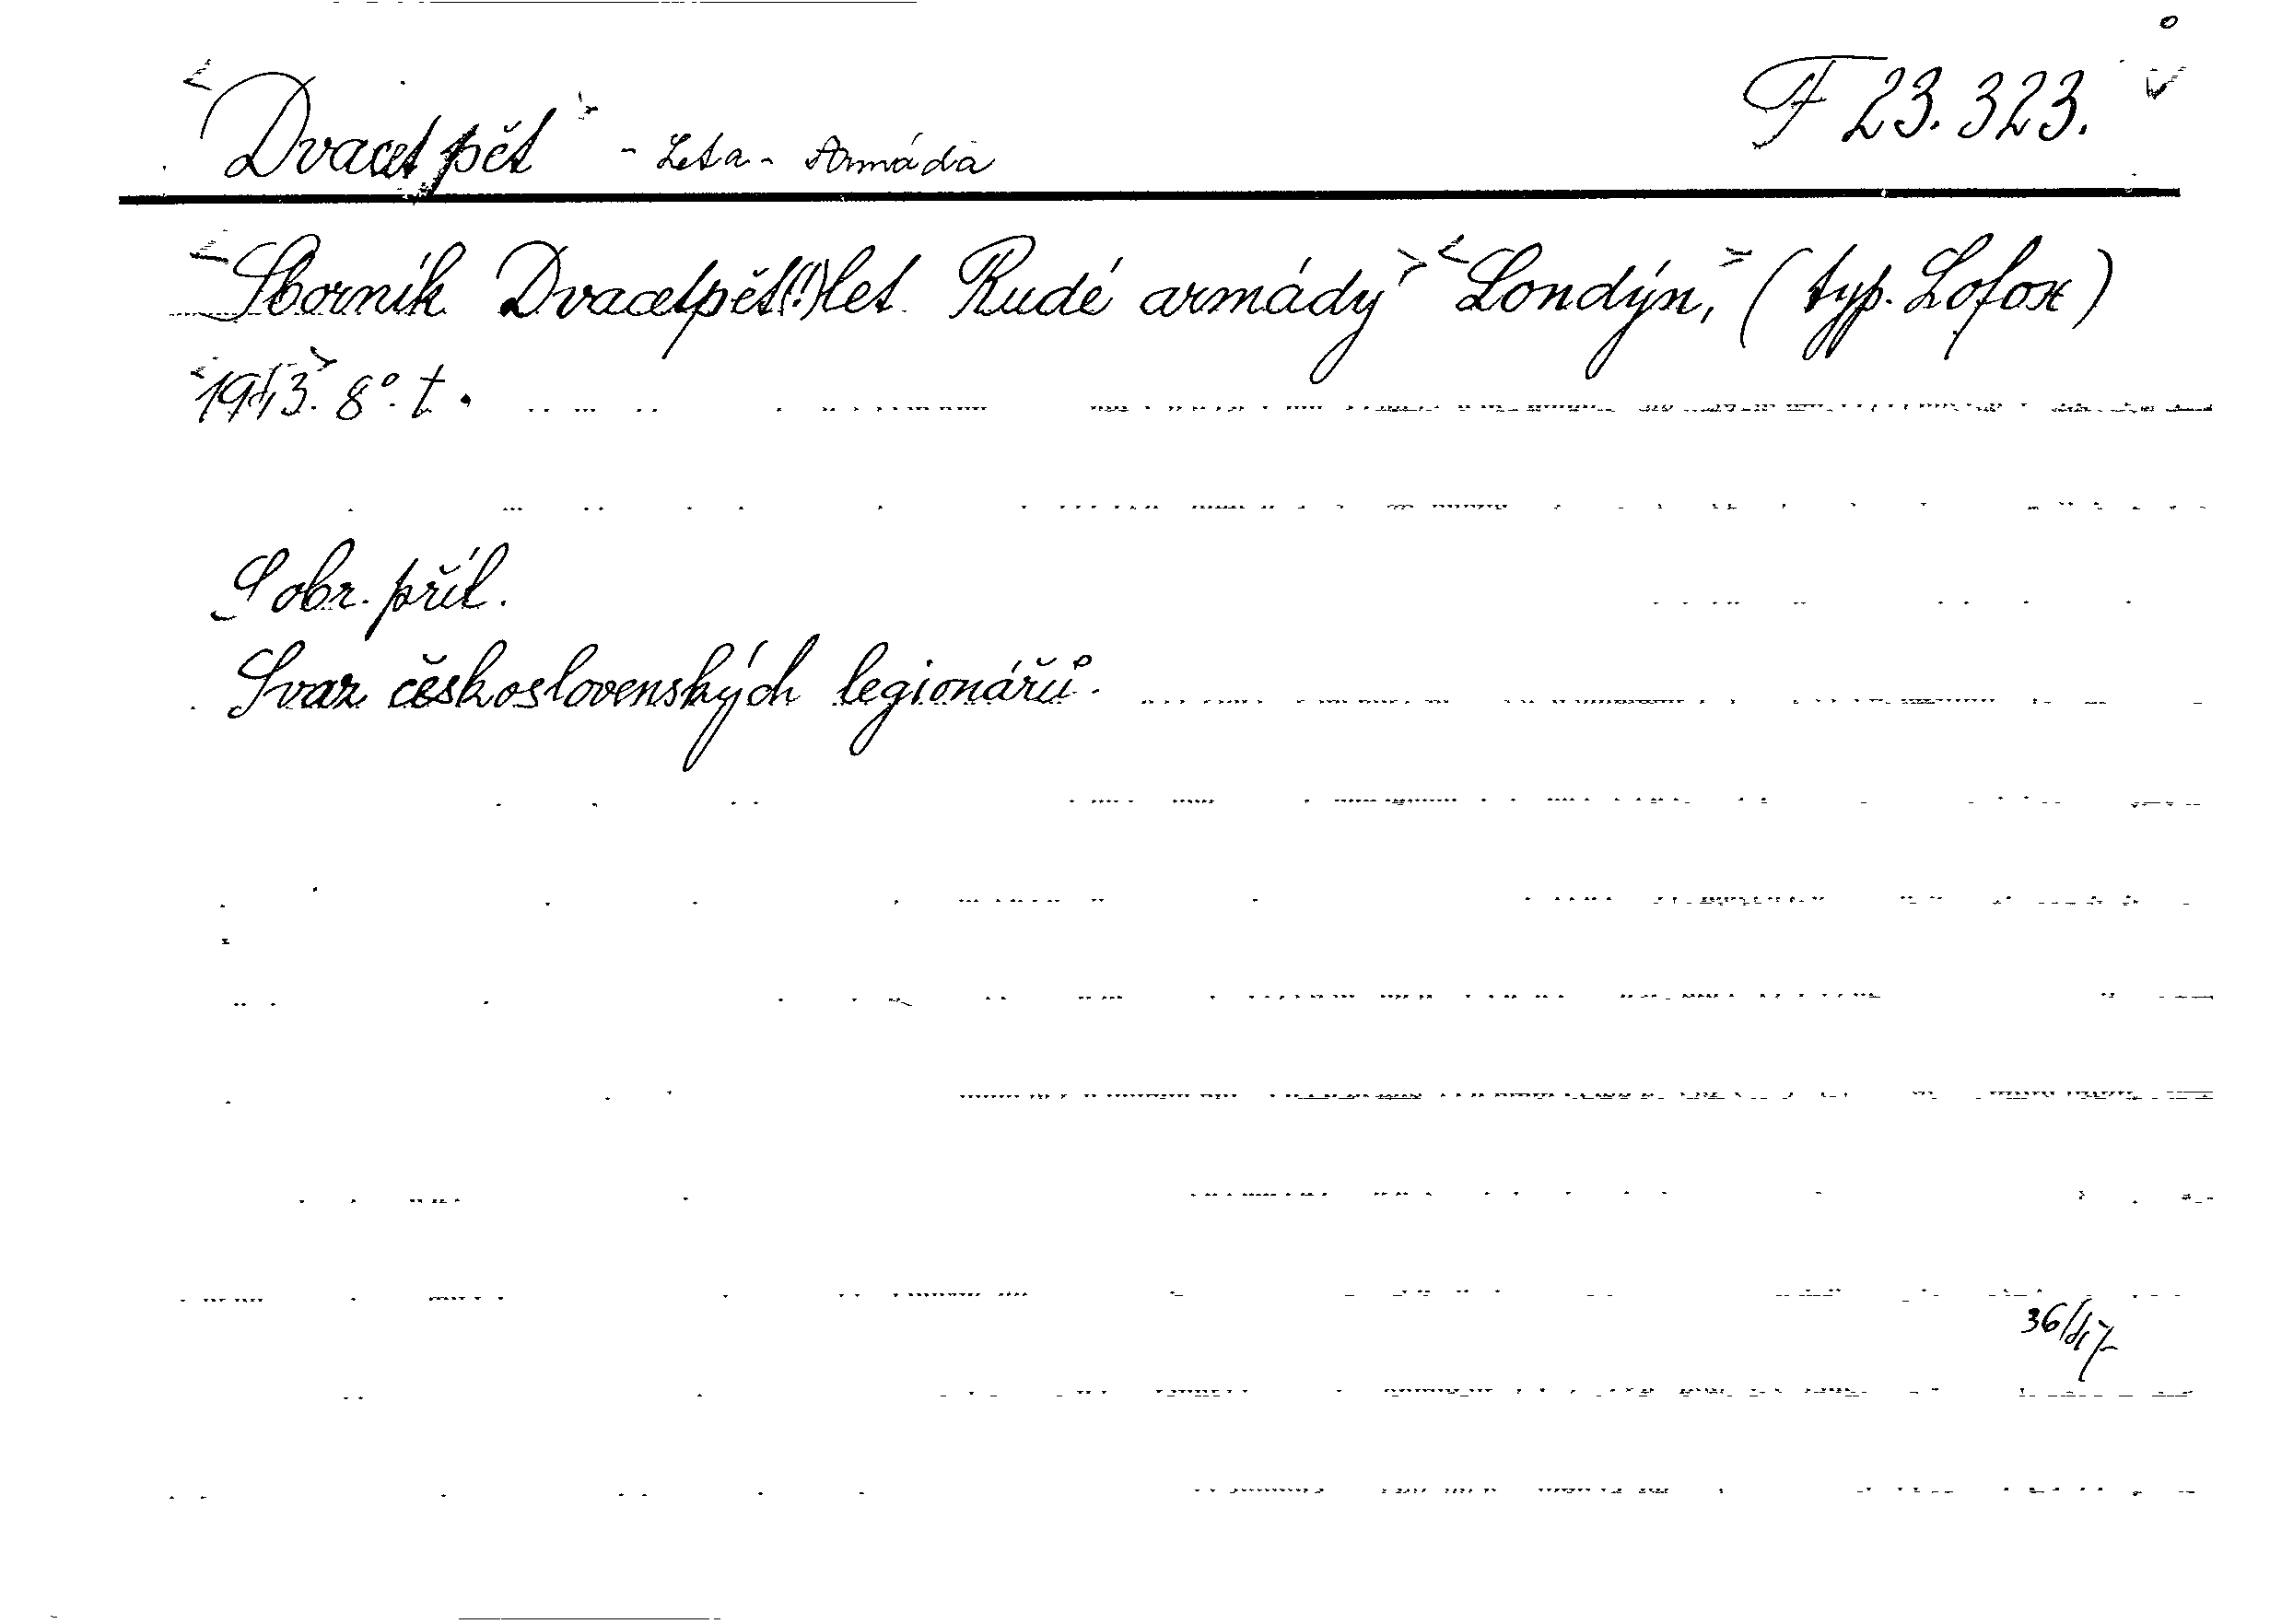 Dvacet pět - Leta - Armáda
F 23.323.
Sborník Dvacetpět(!)let Rudé armády Londýn, (typ. Lofox)
1943. 8°. t.
S obr. příl.
Svaz československých legionářů.
36/47